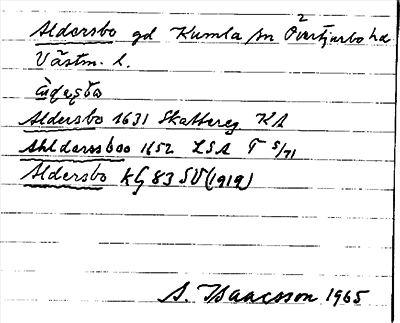 Aldersbo gd Kumla sn Övertjurbo hd
Västm. l.
Aldersbo 1631 Skattereg KA
Ahlderssboo 1652 LSA T 5/71
Aldersbo KG 83 SV (1919)
S. Isaacsson 1965